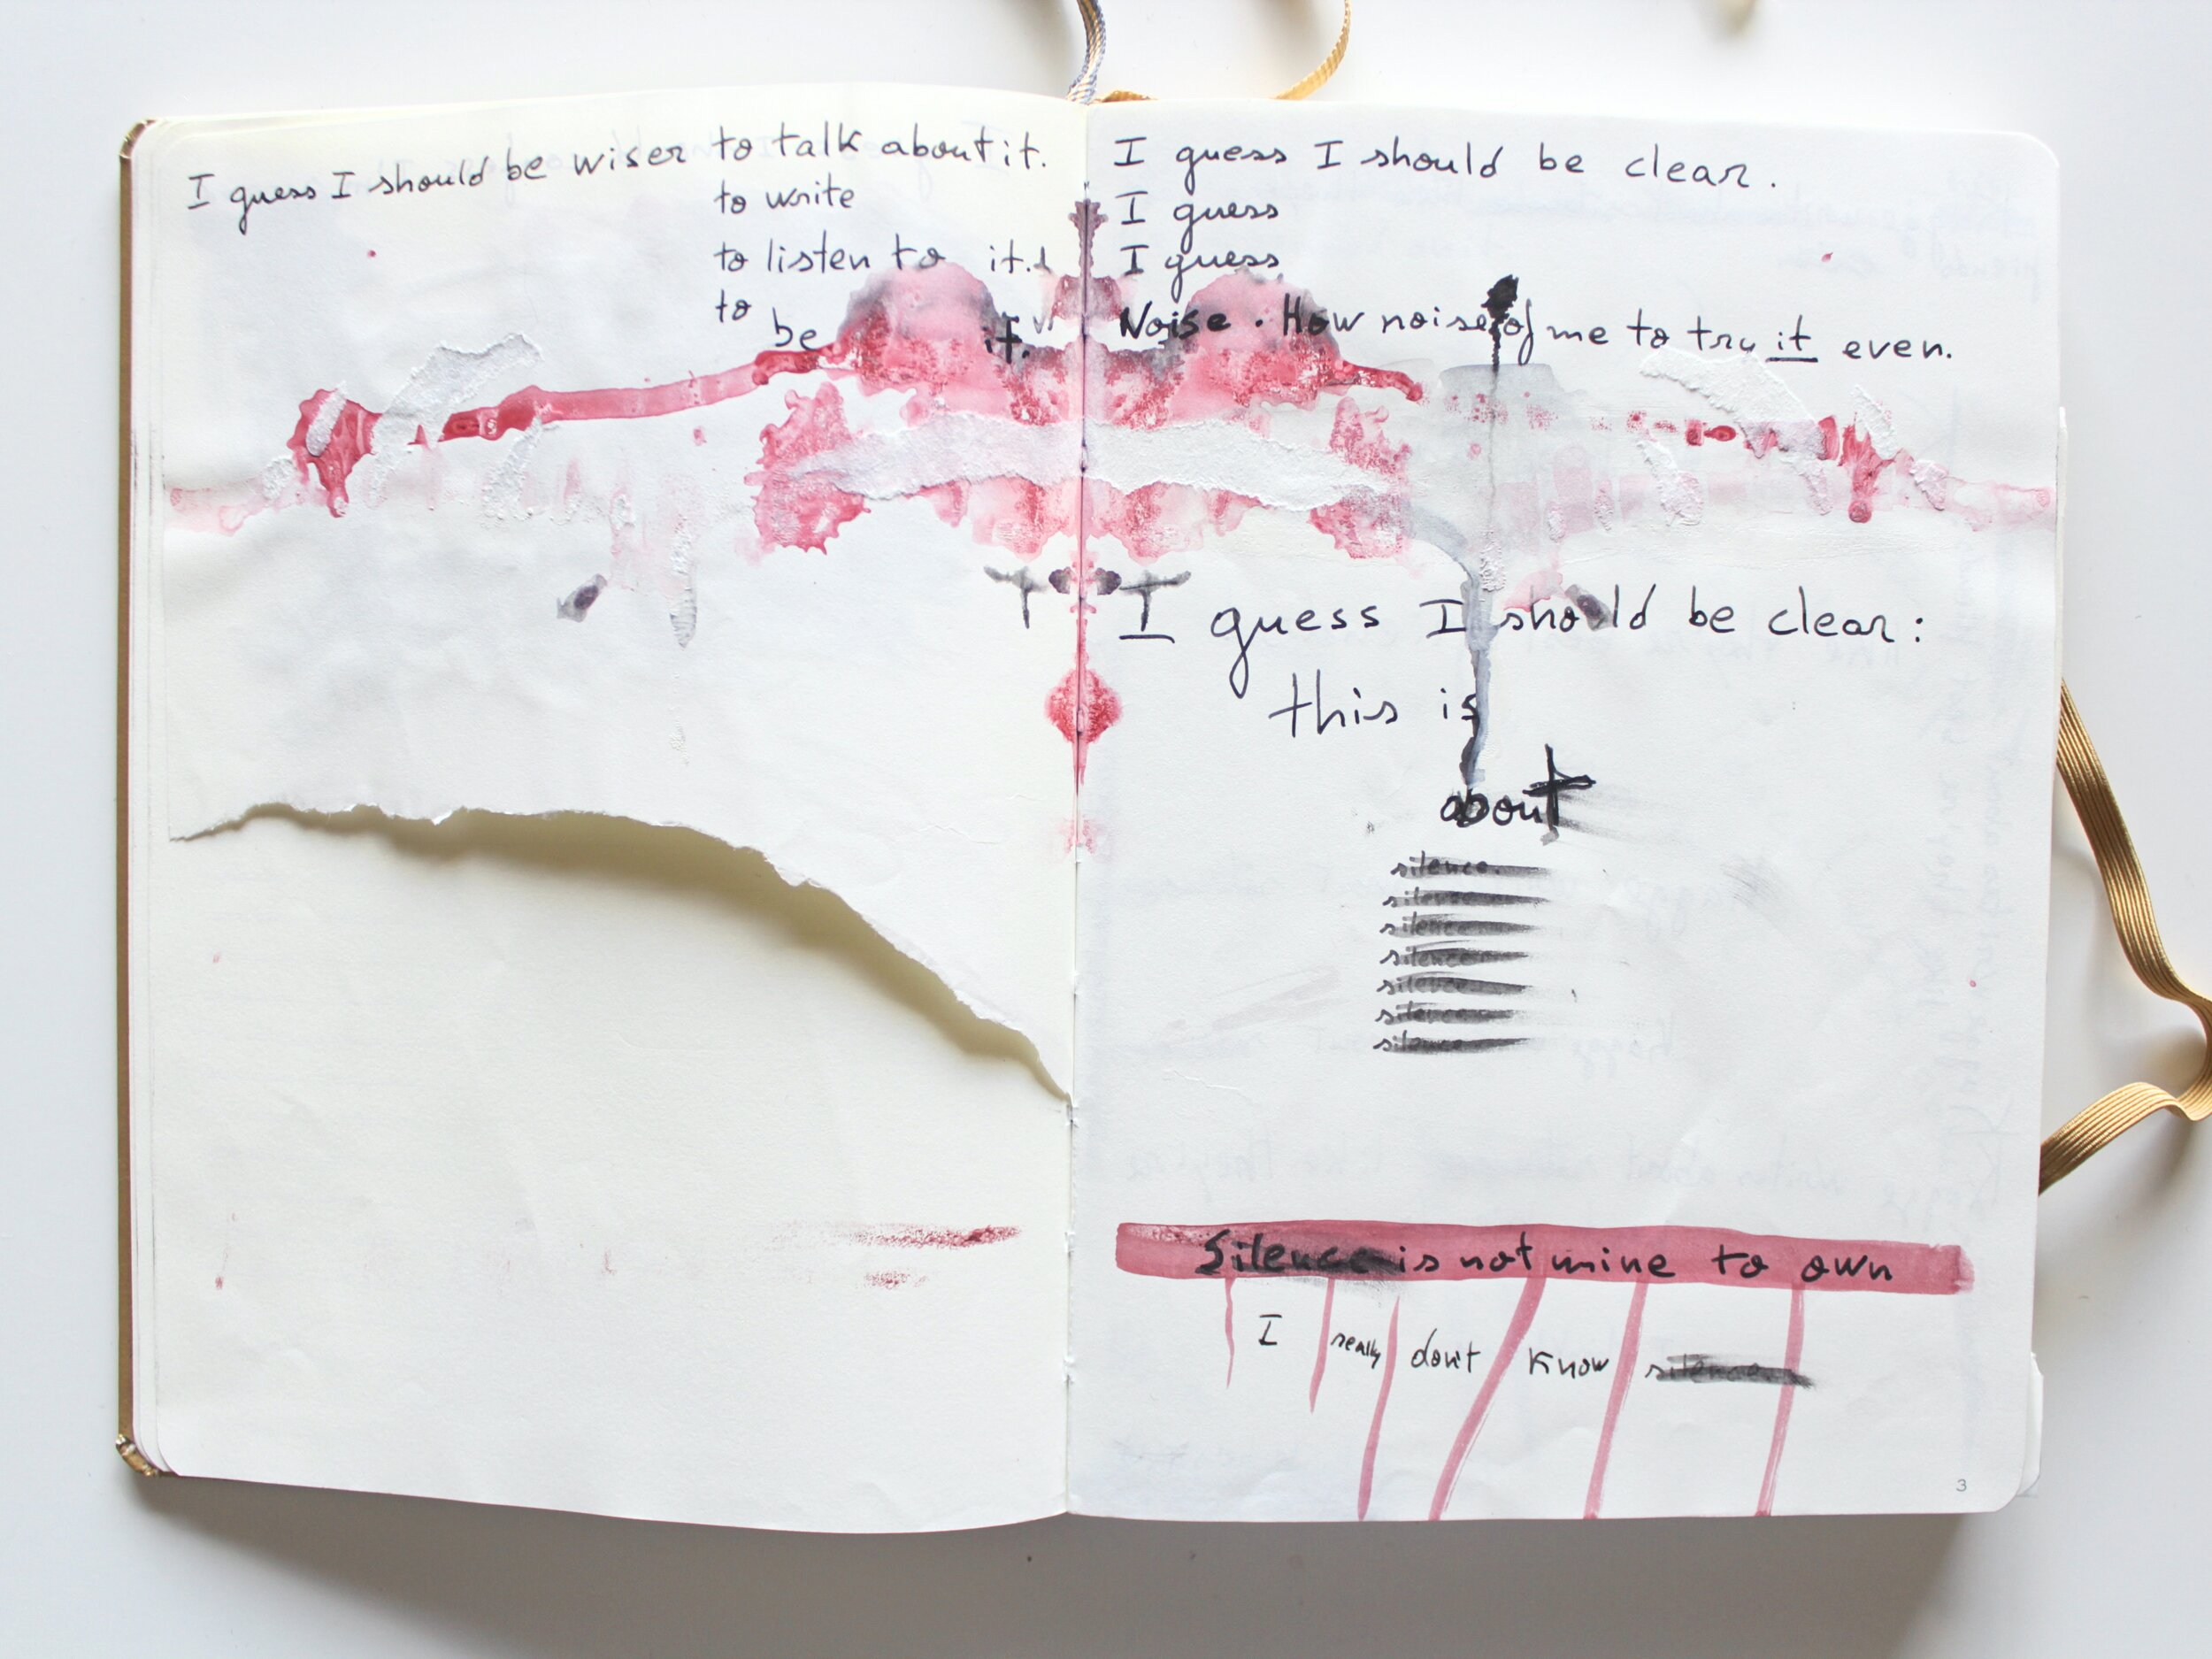 I guess I should be wiser to talk about it.
to write
to listen to it.
to be it.
I guess I should be clear.
I guess
I guess
Noise. How noise of me to try it even.
I guess I should be clear:
this is
about
silence.
silence
silence
silence
silence
silence
silence
Silence is not mine to own
I really don't know silence.
3